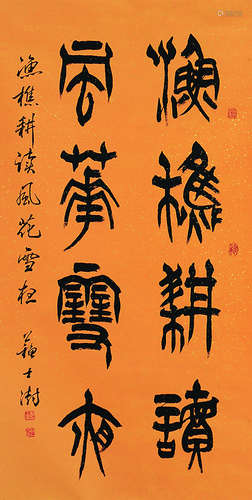 漁樵耕讀
風華雪夜
漁樵耕读風花雪夜 蘇士澍